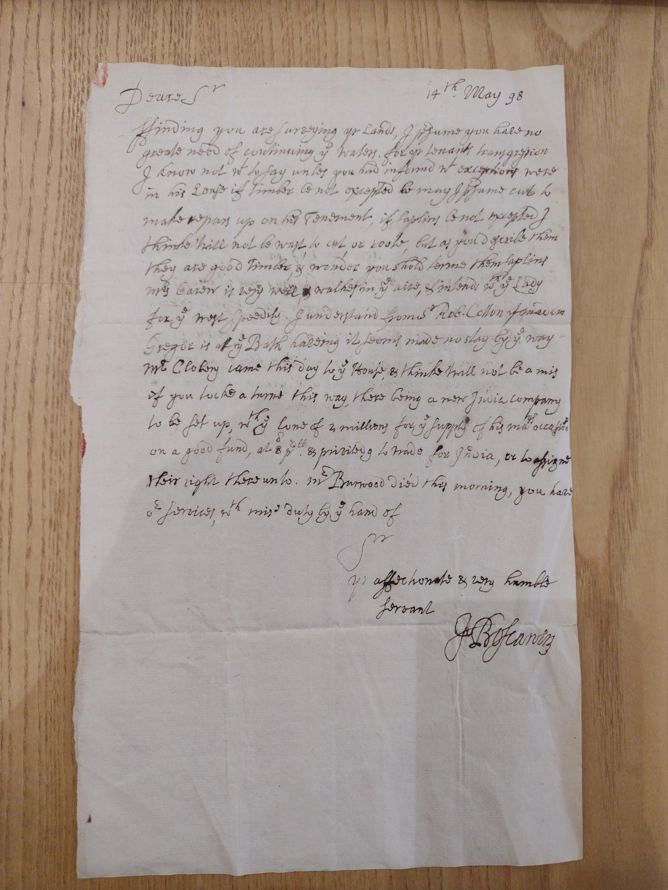 Deare Sr 14th May 98
ffinding you are surveying yr Lands, I psume you have no
greate need of continuing ye waters. for yr tenants transgression
I know not wt to say unles you had informd wt exceptions were
in his Lease if timber be not excepted he may I psume cut to
make repairs up on his Tenement, if saplins be not excepted I
thinke twill not be wast to cut or roote, but as you discribe them
they are good Timber & wonder you shold terme them saplins
Mrs is very well & walkes in ye aire, & intends wth ye Lady
for ye west speedily I understand from Sr Rob: Cotton yt
Gregor is at ye Bath haveing it seems made no stay by ye way
Mr Clobery came this day to ye House, & thinke twill not be amis
if you tooke a turne this way, there being a new India company
to be set up, wth ye Lone of 2 millions for ye supply of his maties occasions
on a good fund, at 8 p & priviledg to trade for India, or to assigne
their right there unto. Mr Burwood died this morning, you have
or services, wth miss duty by ye hand of
Sr
yr affectionate & very humble
servant
J Boscawen